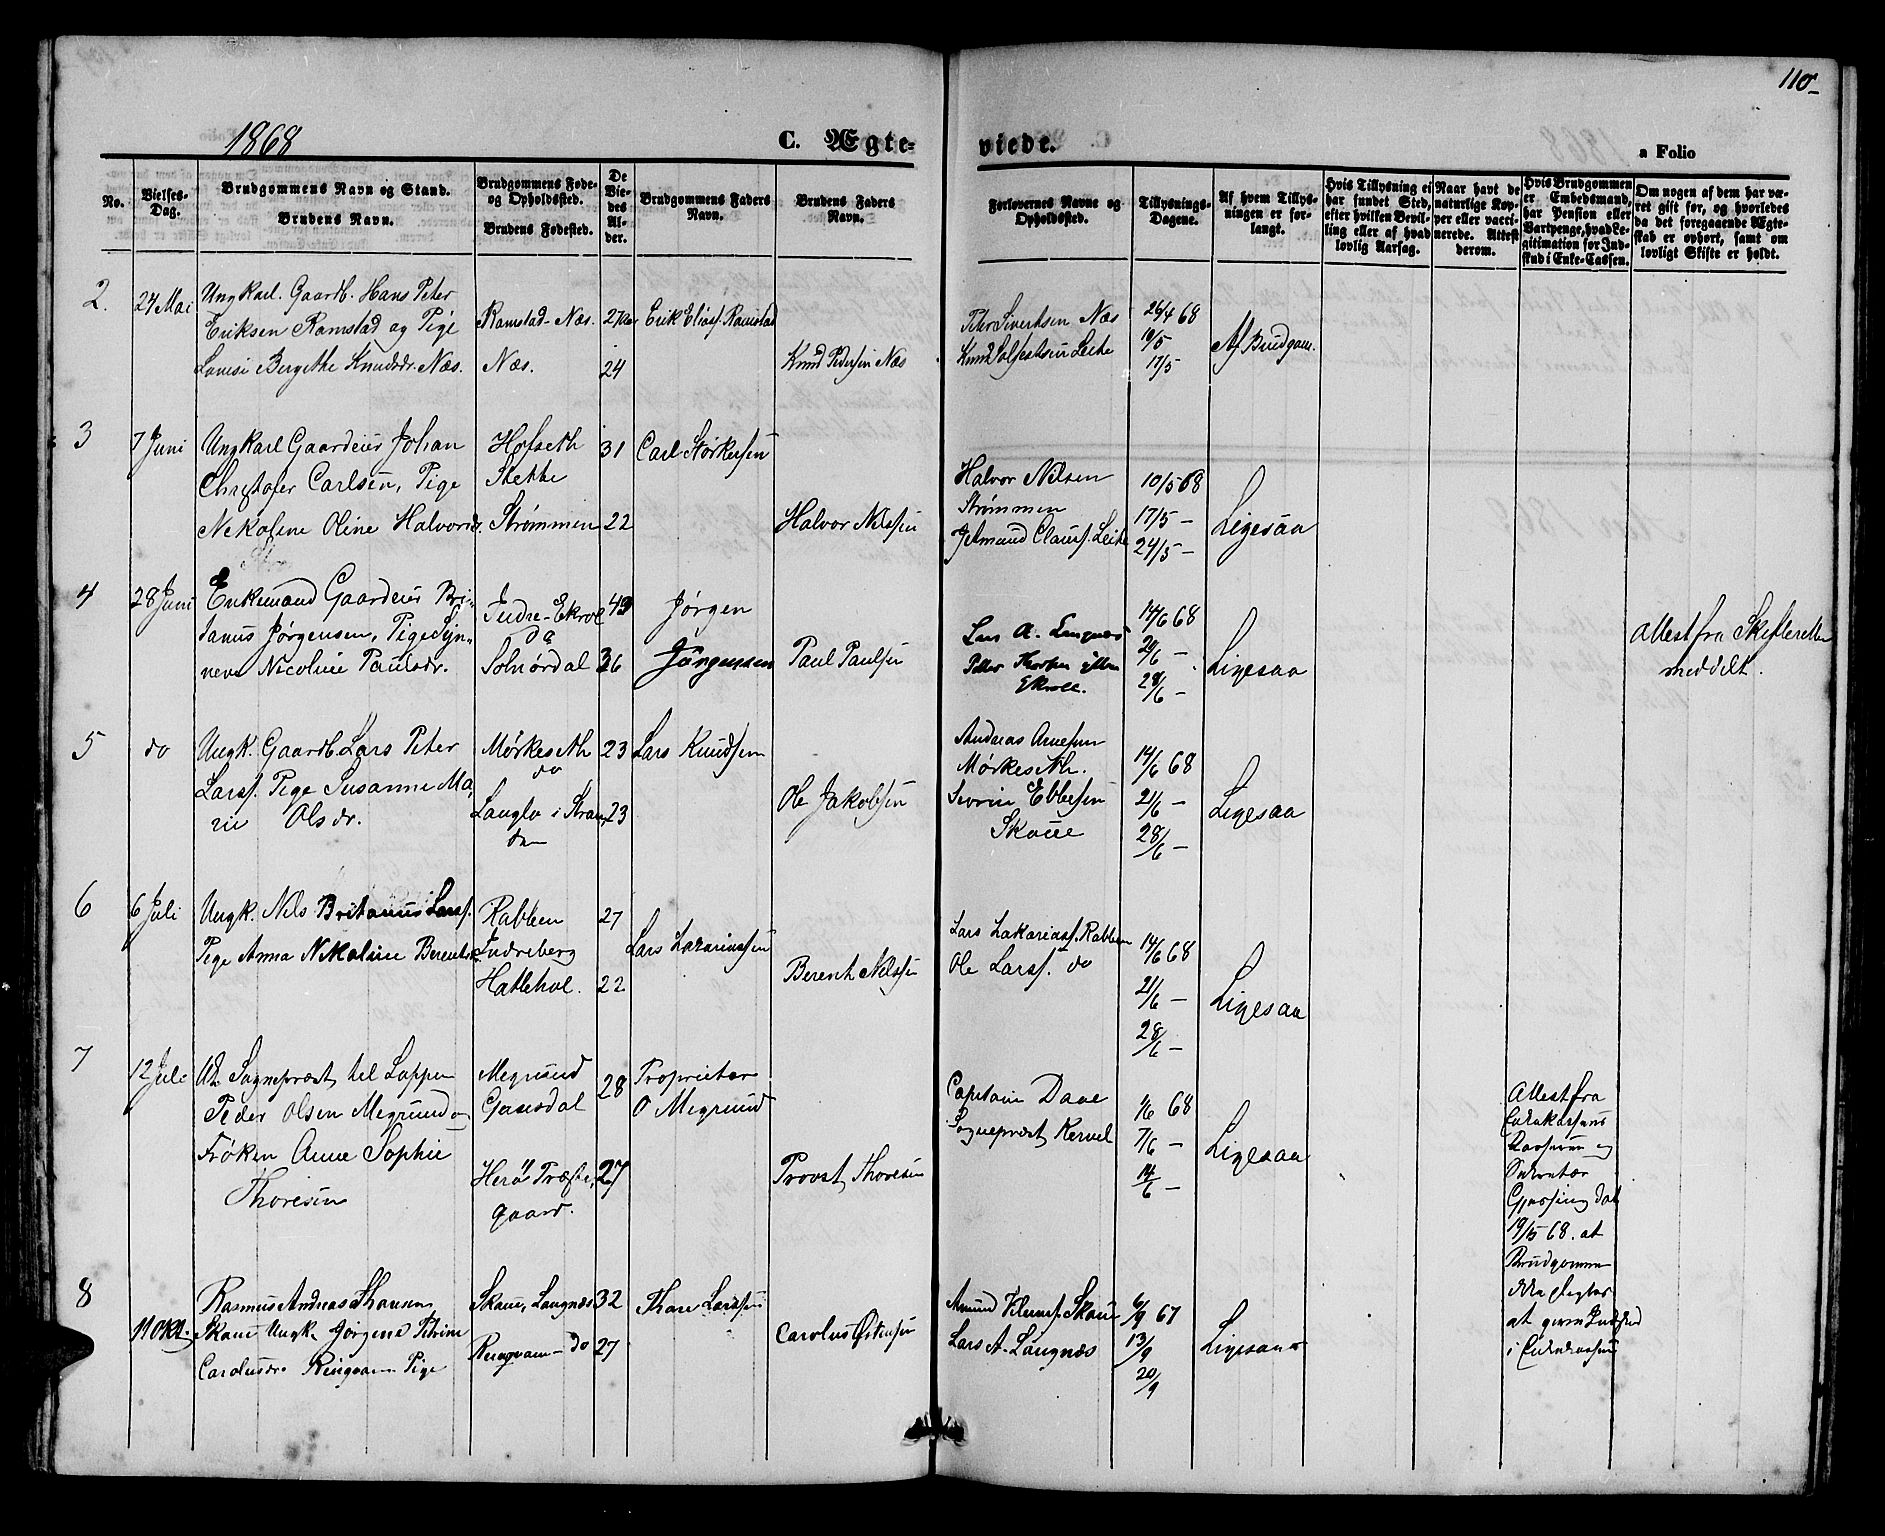 1868
C. Ægte-
viede.
a Folio
110
No.
Vielses-
Dag.
Brudgommens Navn og Stand.
Brudens Navn.
Brudgommens Føde-
og Opholdssted.
Brudens Fødested.
De
Vie-
des
Al-
der.
Brudgommens Faders
Navn.
Brudens Faders
Navn.
Forlovernes Navne og
Opholdssted.
Tillysnings-
Dagene.
Af hvem Tillys-
ningen er for-
langt.
Hvis Tillysning ei
har fundet Sted,
efter hvilken Bevil-
ling eller af hvad
lovlig Aarsag.
Naar havt de
naturlige Kop-
per eller vacci-
nerede. Attest
derom.
Hvis Brudgommen
er Embedsmand,
har Pension eller
Vartpenge, hvad Le-
gitimation for Ind-
skud i Enke-Cassen.
Om nogen af dem har væ-
ret gift før, og hvorledes
da det foregaaende Ægte-
skab er ophørt, samt om
lovligt Skifte er holdt.
2.
24 Mai
Ungkarl. Gaardb. Hans Peter
Eriksen Ramstad og Pige
Lovise Bergethe Knudsdr. Næs.
Ramstad - Næs.
Næs.
24
Erik Eliass. Ramstad
Knud Pedersen Næs
Peter Sivertsen Næs
26/4 68
10/5
17/5
Af Brudgom.
3
7 Juni
Ungkarl Gaardeier Johan
Christofer Carlsen, Pige
Nekoline Oline Halvorsdr.
Hofseth
Stette
Strømmen
31
22
Carl Størkersen
Halvor Nilssen
Halvor Nilsen
Strømmen
Clauss. Leite
10/5 68
17/5 -
24/5 -
Ligesaa
4
28 Juni
Enkemand Gaardeier Bri-
tanus Jørgensen, Pige Syn-
neve Nicoline Paulsdr.
Indre-Ekrol
Solnørdal
49
36
Jørgen
Jørgensen
Paul Paulsen
Lars A. Langnæs
Ekroll.
14/6 68
21/6 -
28/6 -
Ligesaa
Attest fra Skifteretten
meddelt.
5
do
Ungk. Gaardb. Lars Peter
Larss. Pige Susanne Ma-
rie Olsdr.
Mørkeseth
do
Langlo i Stran-
da
23
23
Lars Knudsen
Ole Jakobsen
Andreas Arnesen
Mørkeseth.
Sevrin Ebbesen
Skoue
14/6 68
21/6 -
28/6 -
Ligesaa
6
6 Juli
Ungk. Nils Britanus Larss.
Pige Anna Nekoline Berentsdr.
Rabben
Indreberg
Hattehol.
27
22
Lars Zakariassen
Berent Nilssen
Lars Zakariass. Rabben
Ole Larss. do
14/6 68
21/6 -
28/6 -
Ligesaa
7
12 Juli
Sognepræst til Loppen
Peder Olsen Megrund og
Frøken Anne Sophie
Thoresen
Megrund
Gausdal
Herö Præste-
gaard.
28
27
Proprietær
O Megrund
Provst Thoresen
Capitain Daae
Sognepræst
1/6 68
7/6 -
14/6 -
Ligesaa
Attest fra
Enkekassens
og
Sekretær
dat
19/5 68. at
Brudgommen
at gjøre Indskud
i Enkekassen
8
11 Okt.
Rasmus Andreas Thoresen
Skoue Ungk. Jørgine Petrine
Carolusdr. Ringvam Pige
Skoue, Langnæs
Ringvam - do
32
27
Thore Larssen
Carolus Østensen
Amund Skoue
Lars A. Langnæs
6/9 67
13/9
20/9
Ligesaa